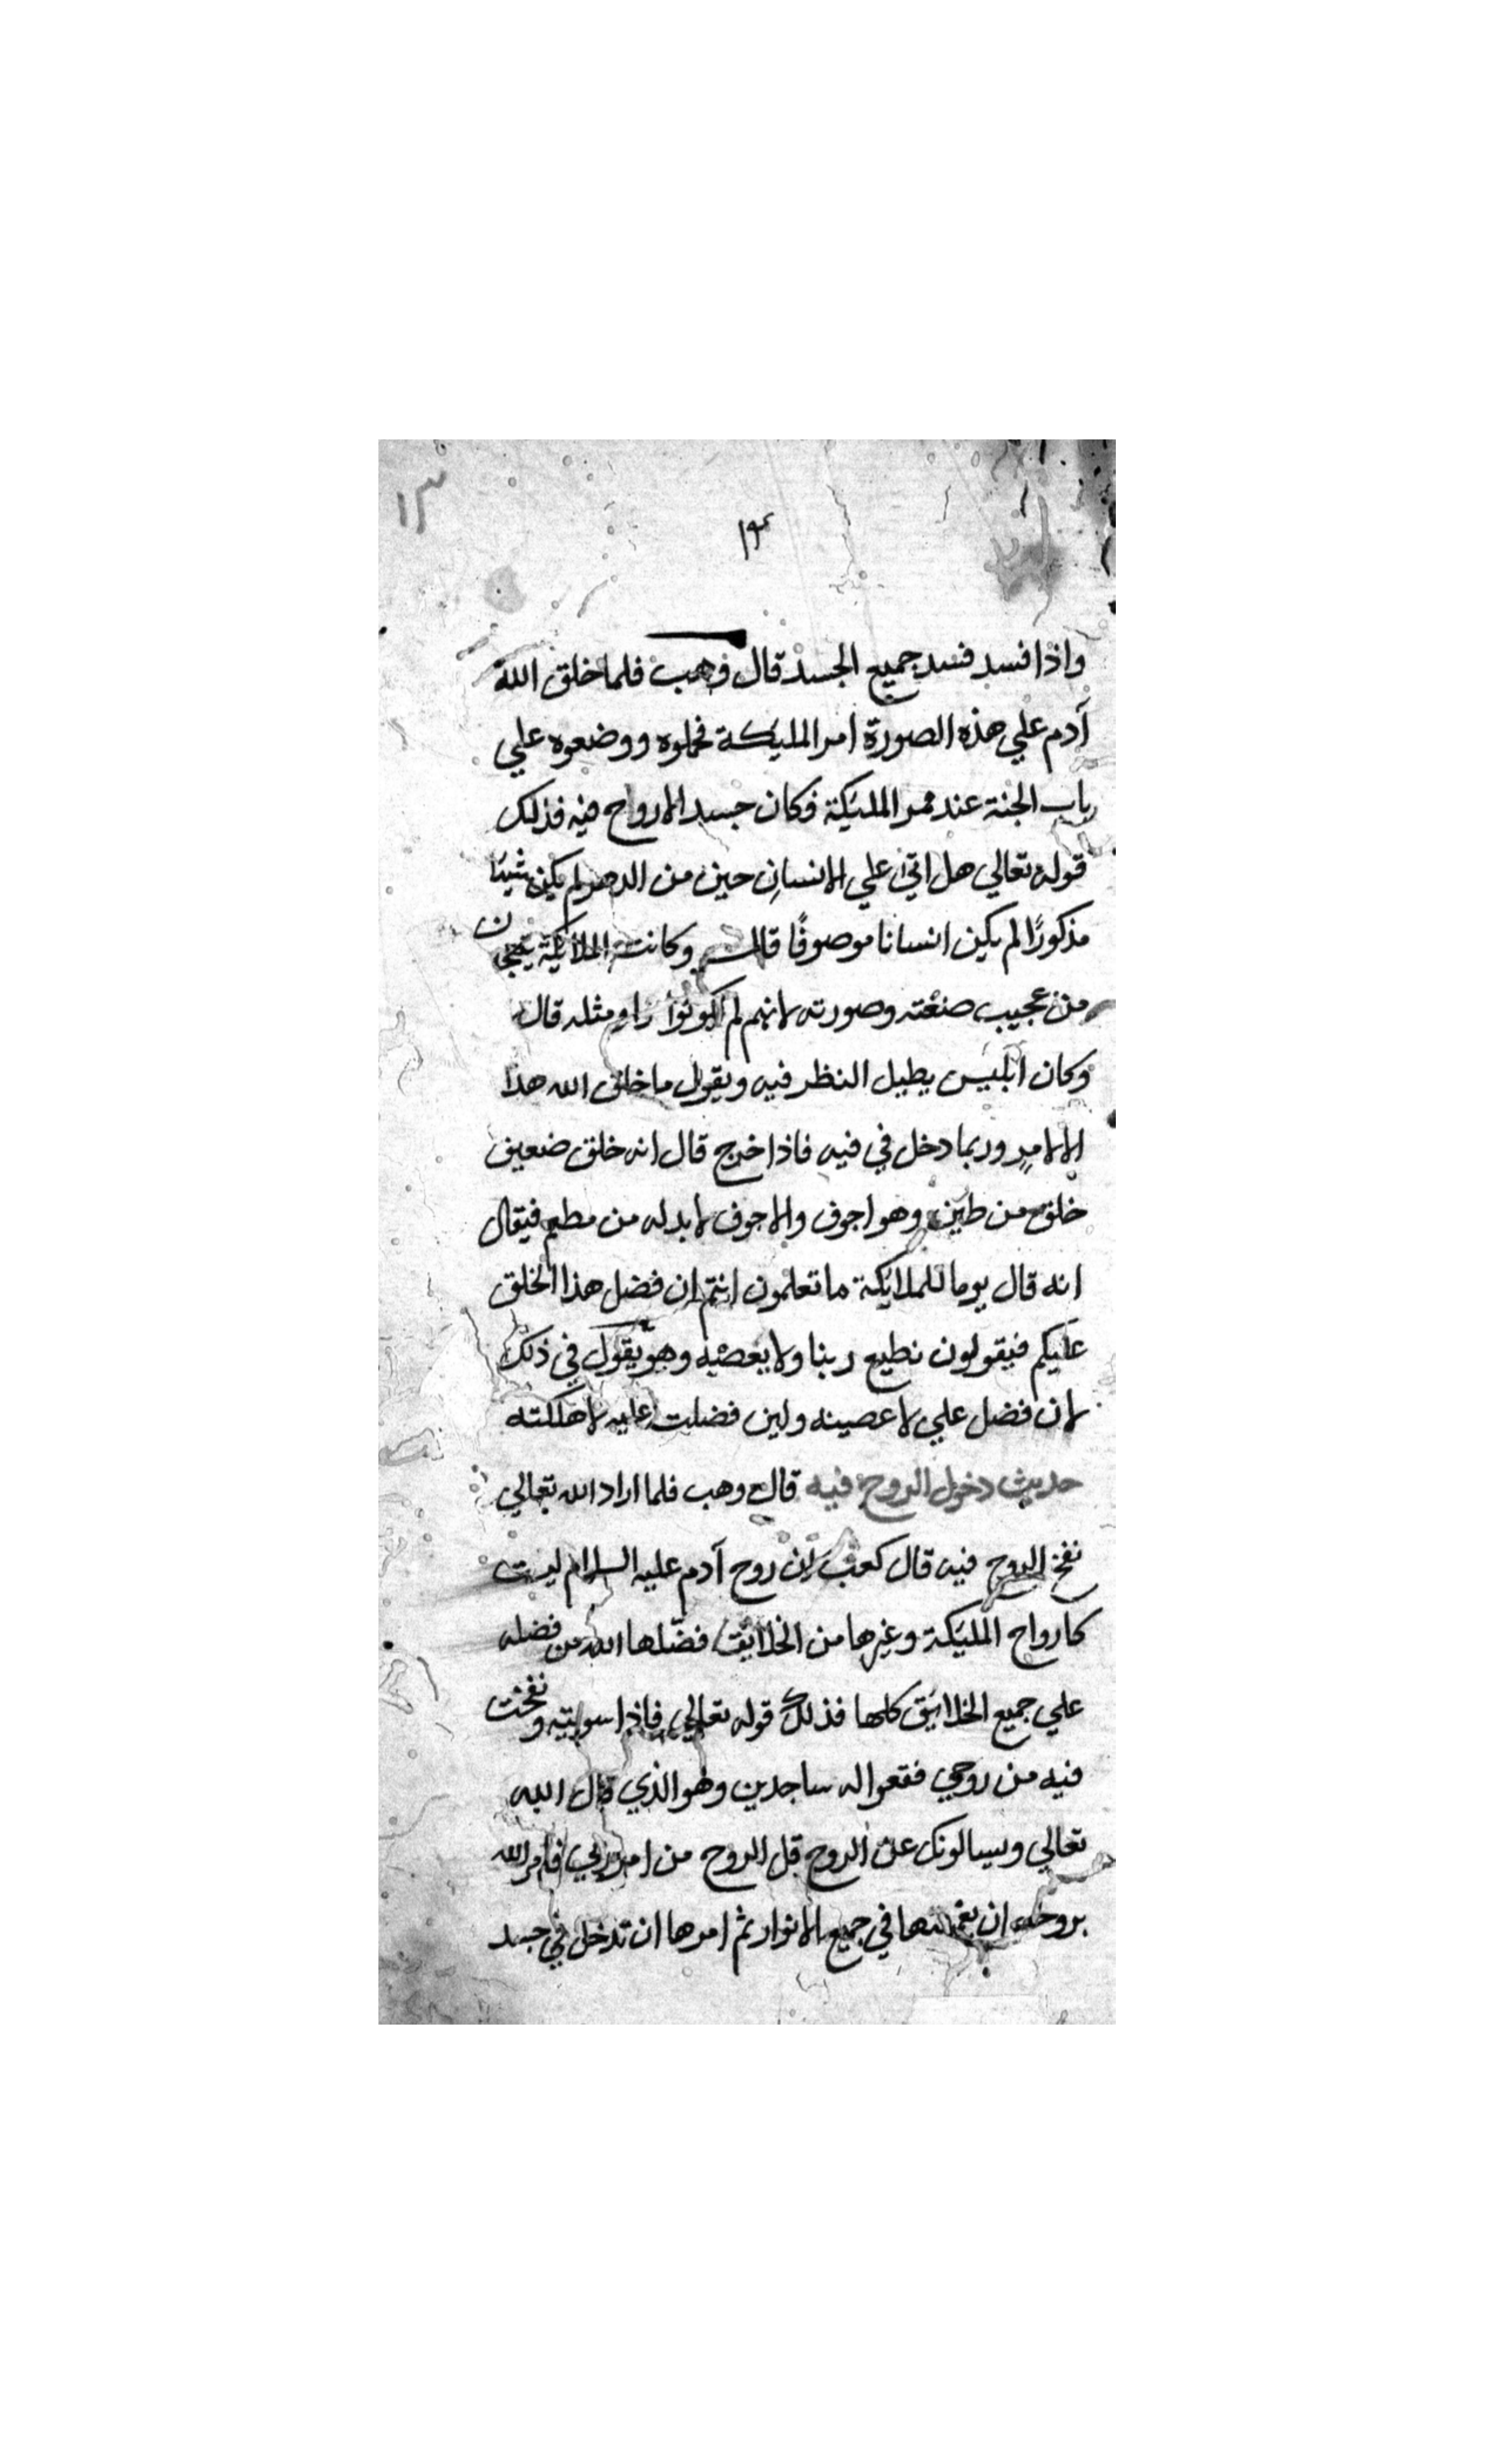 ١٣
١٣
واذا فسد فسد جميع الجسد قال وهب فلما خلق الله
آدم علي هذه الصورة امر المليكة فحملوه ووضعوه علي
باب الجنة عند ممر المليكة فكان جسد الارواح فيه فذلك
قوله تعالي هل اتي علي الانسان حين من الدهر لم يكن شيئا
مذكورًا لم يكن انسانا موصوفًا قال وكانت الملائكة يتعجبون
من عجيب صنعته وصورته لانهم لم يكونوا راو مثله قال
وكان ابليس يطيل النظر فيه ويقول ما خلق الله هذا
الا لامرٍ وربما دخل في فيه فاذا خرج قال انه خلق ضعيف
خلق من طين وهو اجوف والاجوف لا بد له من مطعم فيقال
انه قال يوما للملائكة ما تعلمون انتم ان فضل هذا الخلق
عليكم فيقولون نطيع ربنا ولا نعصيه وهو يقول في ذلك
لان فضل علي لاعصينه ولين فضلت عليه لاهلكته
حديث دخول الروح فيه قال وهب فلما اراد الله تعالي
نفخ الروح فيه قال كعب ان روح آدم عليه السلام ليست
كارواح المليكة وغيرها من الخلايق فضّلها الله من فضله
علي جميع الخلائق كلها فذلك قوله تعالي فاذا سويته ونفخت
فيه من روحي فقعوا له ساجدين وهو الذي قال الله
تعالي ويسالونك عن الروح قل الروح من امر ربي فامر الله
بروحه ان في جميع الانوار ثم امرها ان تدخل في جسد